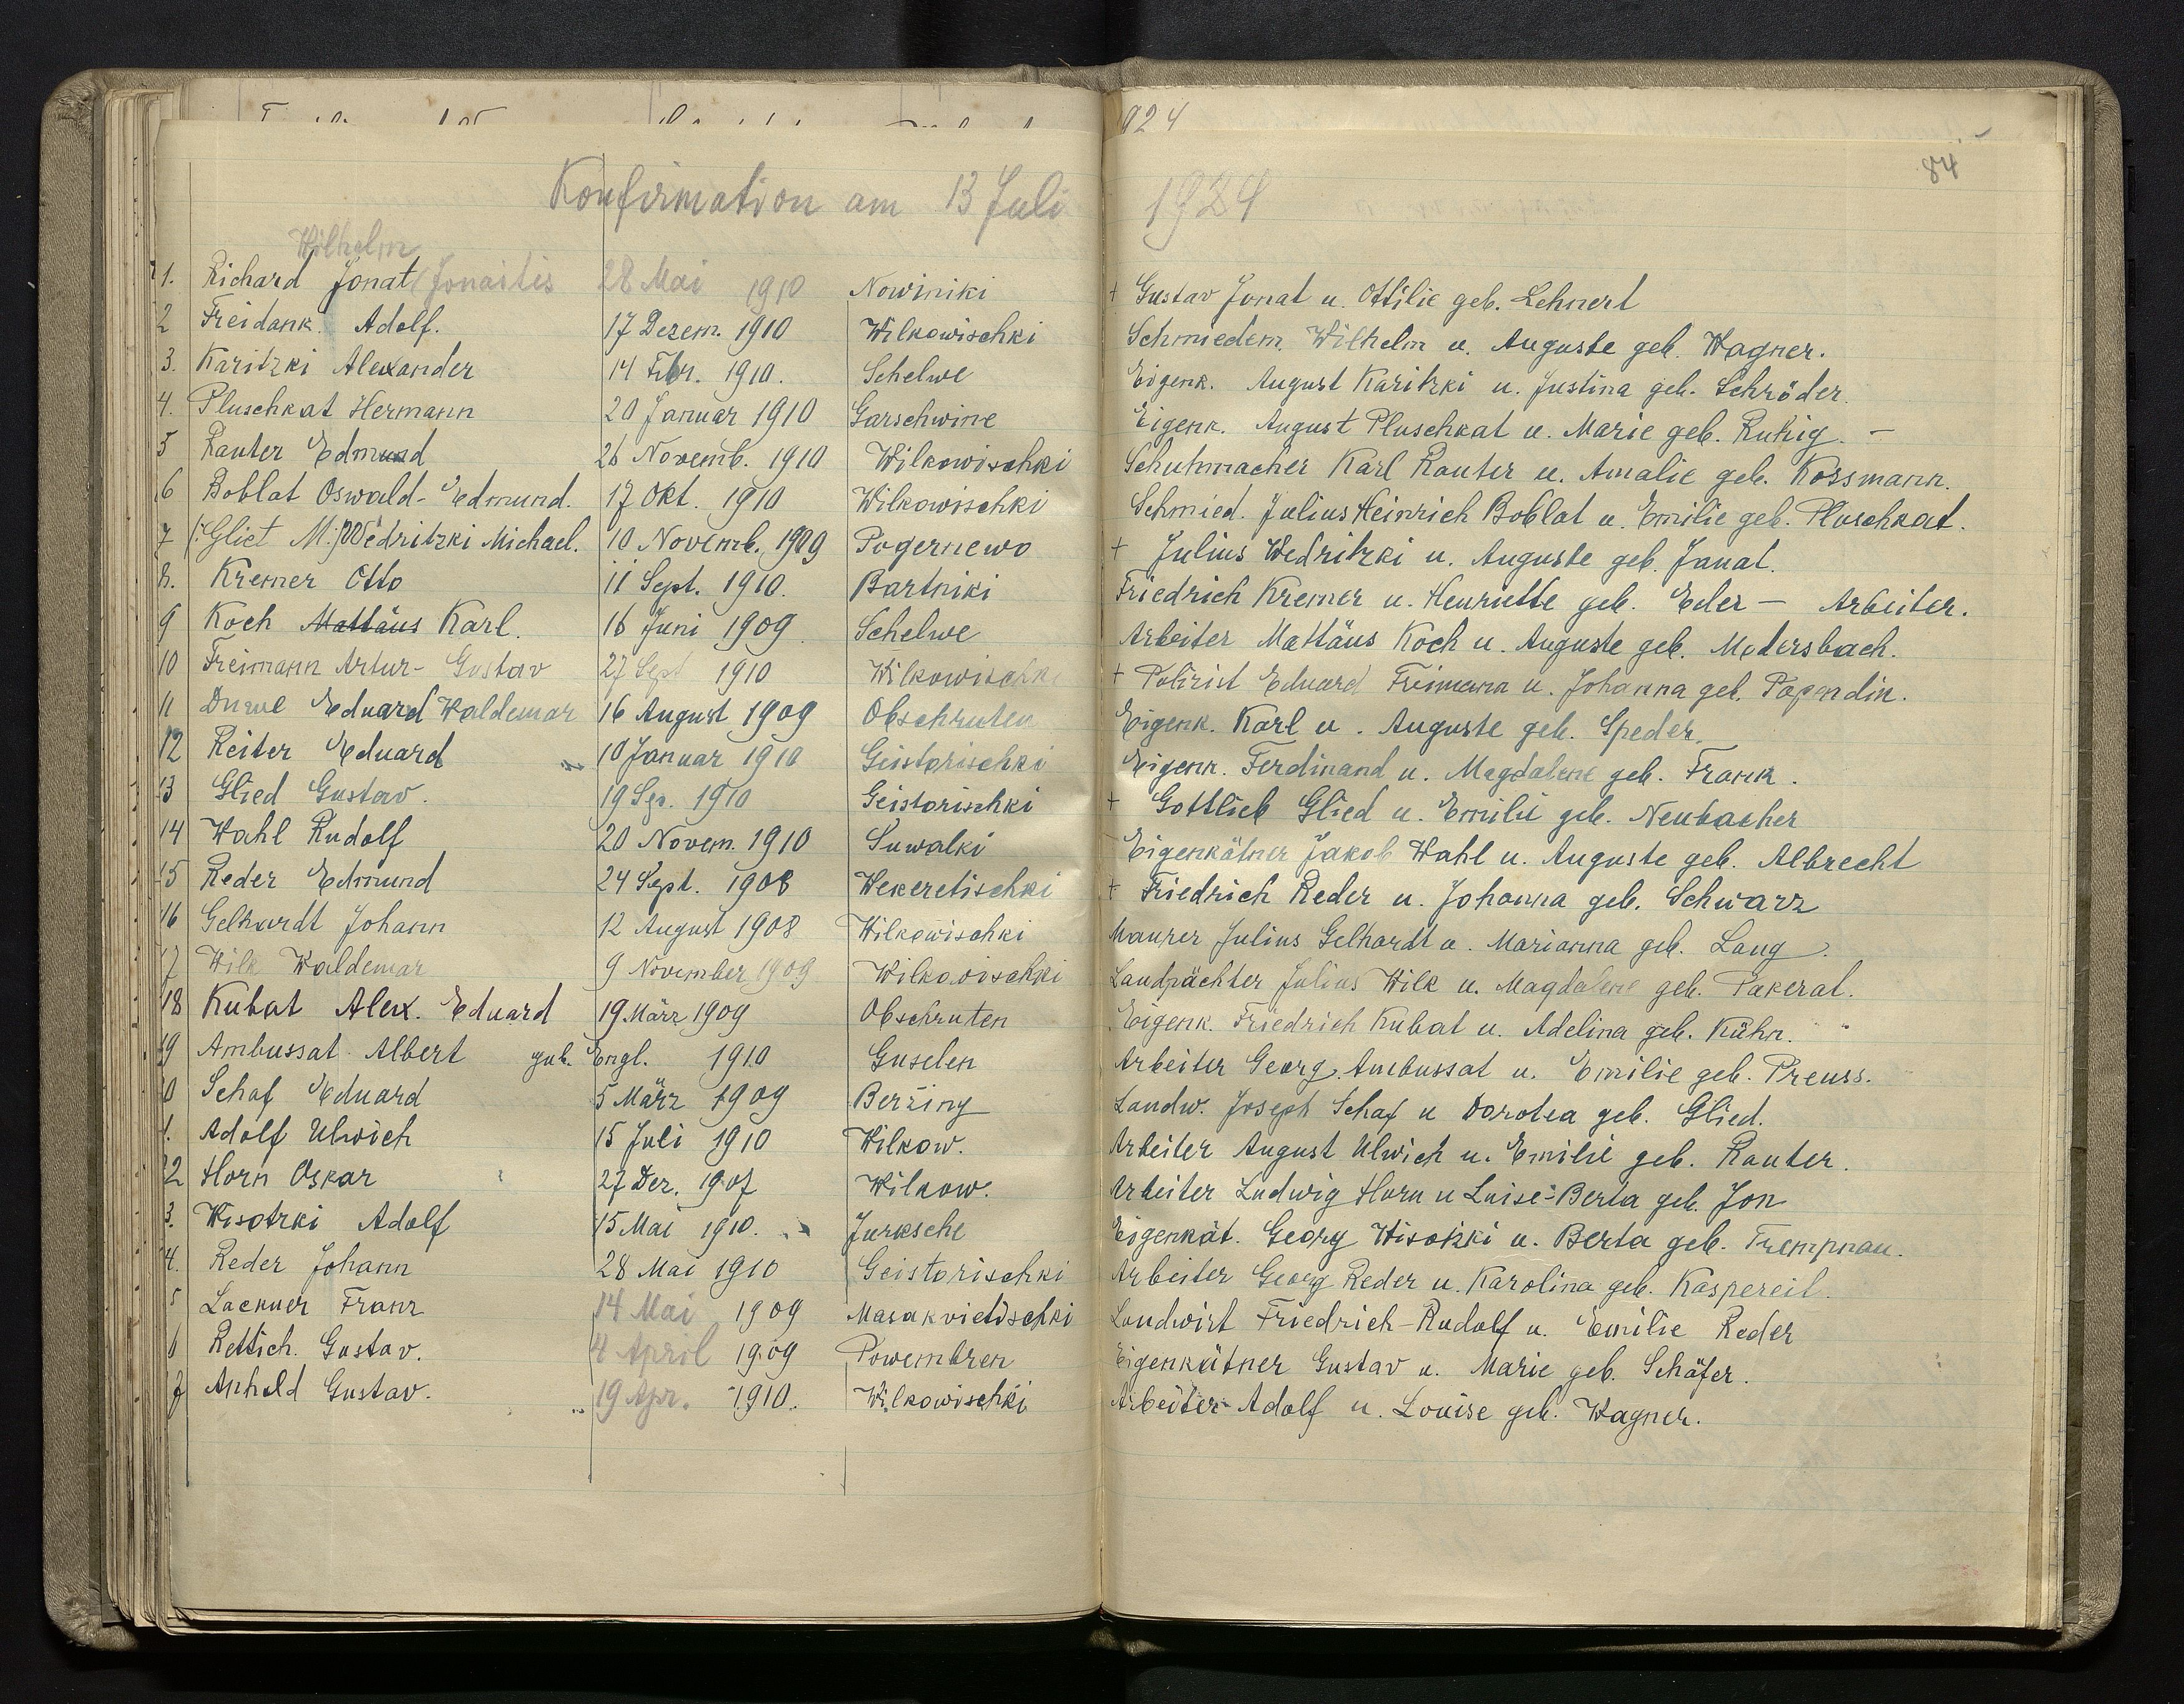 924
84
Konfirmation am 13 Juli 1924
Wilhelm
1. Richard Jonat (Jonaitis 28 Mai 1910 Nowiniki + Gustav Jonat u. Ottilie geb. Lehnert
2 Freidank. Adolf. 17 Dezem. 1910 Wilkowischki Schmiedem. Wilhelm u. Auguste geb. Wagner.
3. Karitzki Alexander 14 Febr. 1910. Schelwe Eigenk. August Karitzki u. Justina geb. Schröder.
4. Pluschkat Hermann 20 Januar 1910 Garschwine Eigenk. August Pluschkat u. Marie geb. Ruhig. –
5 Rauter Edmund 26 Novemb. 1910 Wilkowischki Schuhmacher Karl Rauter u. Amalie geb. Kossmann.
6 Boblat Oswald-Edmund. 17 Okt. 1910 Wilkowischki Schmied. Julius Heinrich Boblat u. Emilie geb. Pluschkat.
7 (:Gliet M:) Wedritzki Michael. 10 Novemb. 1909 Pogernewo + Julius Wedritzki u. Auguste geb. Janat.
8. Kremer Otto 11 Sept. 1910. Bartniki Friedrich Kremer u. Henriette geb. Eder – Arbeiter.
9 Koch Mattäus Karl. 16 Juni 1909 Schelwe Arbeiter Mattäus Koch u. Auguste geb. Medersbach.
10 Freimann Artur-Gustav 27 Sept 1910 Wilkowischki + Polizist Eduard Freimann u. Johanna geb. Papendin.
11 Duwe Eduard Waldemar 16 August 1909 Obschruten Eigenk. Karl u. Auguste geb. Speder.
12 Reiter Eduard 10 Januar 1910 Geistorischki Eigenk. Ferdinand u. Magdalene geb. Frank.
13 Glied Gustav. 19 Sep. 1910 Geistorischki + Gottlieb Glied u. Emilie geb. Neubacher
14 Wahl Rudolf 20 Novem. 1910 Suwalki Eigenkätner Jakob Wahl u. Auguste geb. Albrecht
15 Reder Edmund 24 Sept. 1908 Wekeretischki + Friedrich Reder u. Johanna geb. Schwarz
16 Gelhardt Johann 12 August 1908 Wilkowischki Maurer Julius Gelhardt u. Marianna geb. Lang.
17 Wilk Waldemar 9 November 1909 Wilkowischki Landpächter Julius Wilk u. Magdalene geb. Pakerat.
18 Kubat Alex. Eduard 19 März 1909 Obschruten Eigenk. Friedrich Kubat u. Adelina geb. Kühn.
19 Ambussat Albert geb. Engl. 1910 Guselen Arbeiter Georg Ambussat u. Emilie geb. Preuss.
0 Schaf Eduard 5 März 1909 Beržiny Landw. Joseph Schaf u Dorotea geb. Glied.
1. Adolf Ulwich 15 Juli 1910 Wilkow. Arbeiter August Ulwich u. Emilie geb. Rauter.
22 Horn Oskar 27 Dez. 1907 Wilkow. Arbeiter Ludwig Horn u Luise-Berta geb. Jon
3. Wisotzki Adolf 15 Mai 1910. Jurksche Eigenkät. Georg Wisotzki u. Berta geb. Trempnau.
4. Reder Johann 28 Mai 1910 Geistorischki Arbeiter Georg Reder u. Karolina geb. Kaspereit.
5 Lackner Franz 14 Mai 1909 Masakvietischki Landwirt Friedrich-Rudolf u. Emilie Reder
6 Rettich. Gustav. 4 April 1909 Powembren Eigenkätner Gustav u. Marie geb. Schäfer.
7 Anhold Gustav. 19 Apr. 1910. Wilkowischki Arbeiter Adolf u. Louise geb. Wagner.